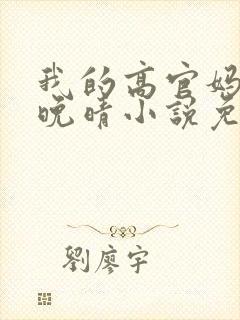 我的高官妈
晚晴小說免
劉廖宇